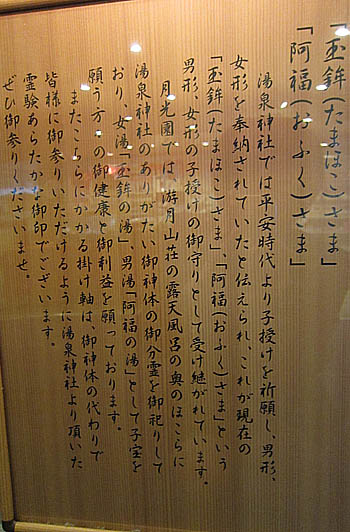 「玉鉾(たまほこ)さま」
「阿福(おふく)さま」
湯泉神社では平安時代より子授けを祈願し、男形、
女形を奉納されていたと伝えられ、これが現在の
「玉鉾(たまほこ)さま」、「阿福(おふく)さま」という
男形、女形の子授けの御守りとして受け継がれています。
月光園では、游月山荘の露天風呂の奥のほこらに
湯泉神社のありがたい御神体の御分霊を御祀りして
おり、女湯「玉鉾の湯」、男湯「阿福の湯」として子宝を
願う方々の御健康と御利益を願っております。
またこちらにかかる掛け軸は、御神体の代わりで
皆様に御参りいただけるように湯泉神社より頂いた
霊験あらたかな御印でございます。
ぜひ御参りくださいませ。